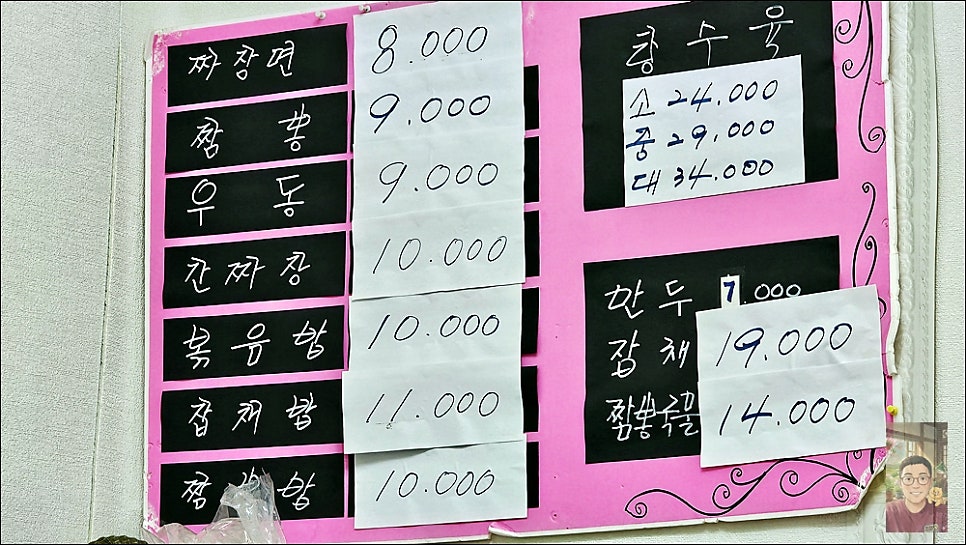 짜장면 8.000
짬뽕 9.000
우동 9.000
간짜장 10.000
볶음밥 10.000
잡채밥 11.000
짬 밥 10.000
탕수육
소 24.000
중 29,000
대 34.000
만두 7.000
잡채 19.000
짬뽕국물 14.000